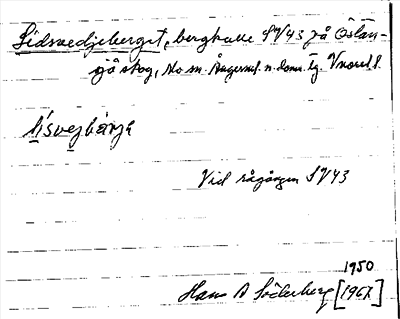 Lidsvedjeberget, berghalle SV/43 på Östan-
sjö skog, Mo sn. Ångerml. n. doms. lg. Vnorrl l.
lisvejbärjə
Vid rågången SV43
1950
Hans A Söderberg [1967]